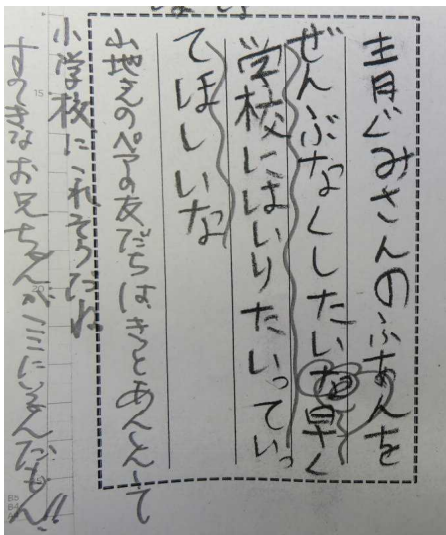 青ぐみさんのふあんを
ぜんぶなくしたいな早く
学校にはいりたいっていっ
てほしいな
のペアの友だちはきっとあんしんして
小学校にこれそうだね
すてきなお兄ちゃんがここにいるんだもん!!